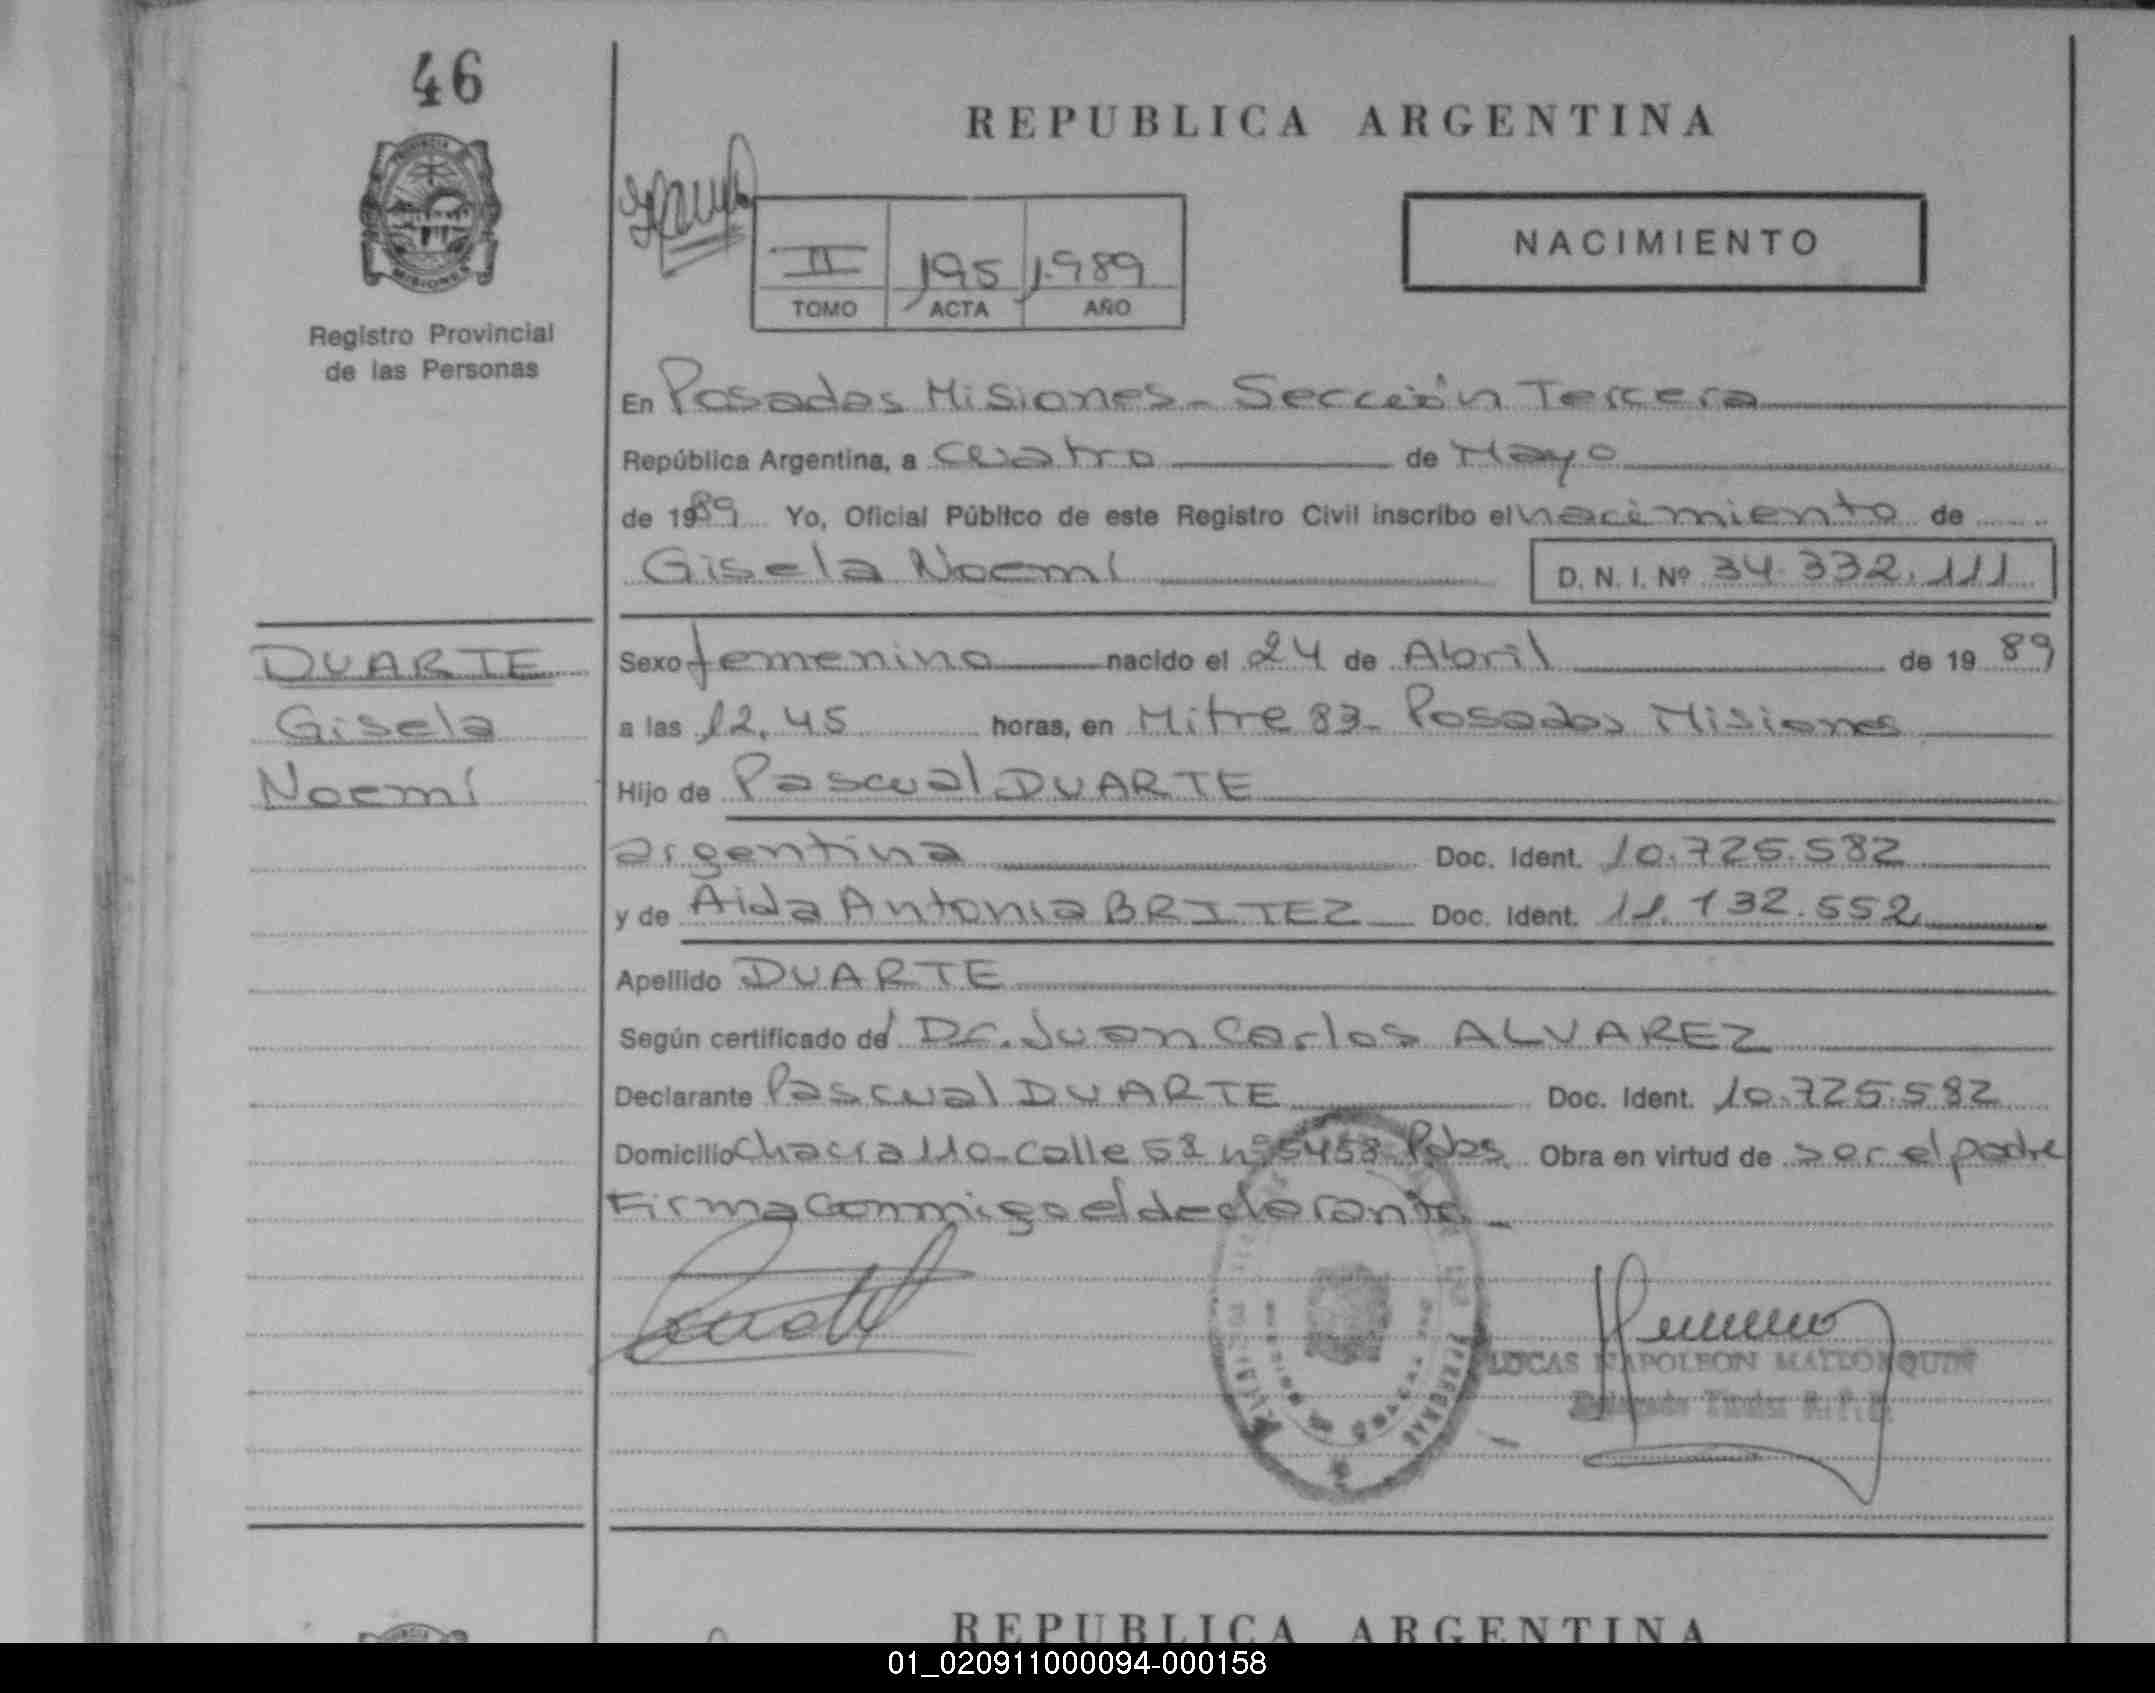 46
REPUBLICA ARGENTINA
PROVINCIA
MISIONES
NACIMIENTO
II 195 1.989
TOMO ACTA AÑO
Registro Provincial
de las Personas
En Posadas Misiones - Sección Tercera
República Argentina, a cuatro de Mayo
de 1989 Yo, Oficial Público de este Registro Civil inscribo el nacimiento de
Gisela Noemí D. N. I. Nº 34.332.111
DUARTE
Gisela
Noemí
Sexo femenino nacido el 24 de Abril de 19 89
a las 12.45 horas, en Mitre 83- Posadas Misiones
Hijo de Pascual DUARTE
argentina Doc. Ident. 10.725.582
y de Aida Antonia BRITEZ Doc. Ident. 11.132.552
Apellido DUARTE
Según certificado de Dr. Juan Carlos ALVAREZ
Declarante Pascual DUARTE Doc. Ident. 10.725.582
Domicilio Chacra 110-calle 58 nº 5458 Pdas Obra en virtud de ser el padre
Firma Conmigo el declarante -
LUCAS NAPOLEON
Delegado Titular R.P.P.
REPUBLICA ARGENTINA
01_020911000094-000158